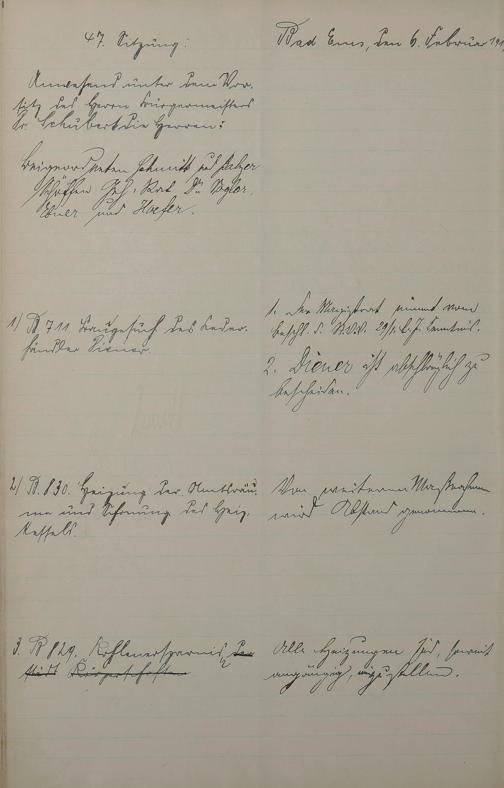 47. Sitzung:
Bad Ems, den 6. Februar 191
Anwesend unter dem Vor-
sitz des Herrn Bürgermeisters
Dr. Schubert die Herren:
Beigeordneten Schmitt und
Schöffen Geh. Rat Dr. Vogler,
Ebner und Hoefer.
1) B. 711. Baugesuch des Leder-
händler Diener.
1. Der Magistrat nimmt vom
Beschl. d. St.V.V. 29/1. l. J. Kenntnis.
2. Diener ist abschläglich zu
bescheiden.
2) B. 830. Heizung der Amtsräu-
me und Schonung des Heiz-
kessels.
Von weiteren Massnahmen
wird Abstand genommen.
3. B 829. Kohlenersparnis der
Stadt Körperschaften
Alle Heizungen sind, soweit
angängig, einzustellen.